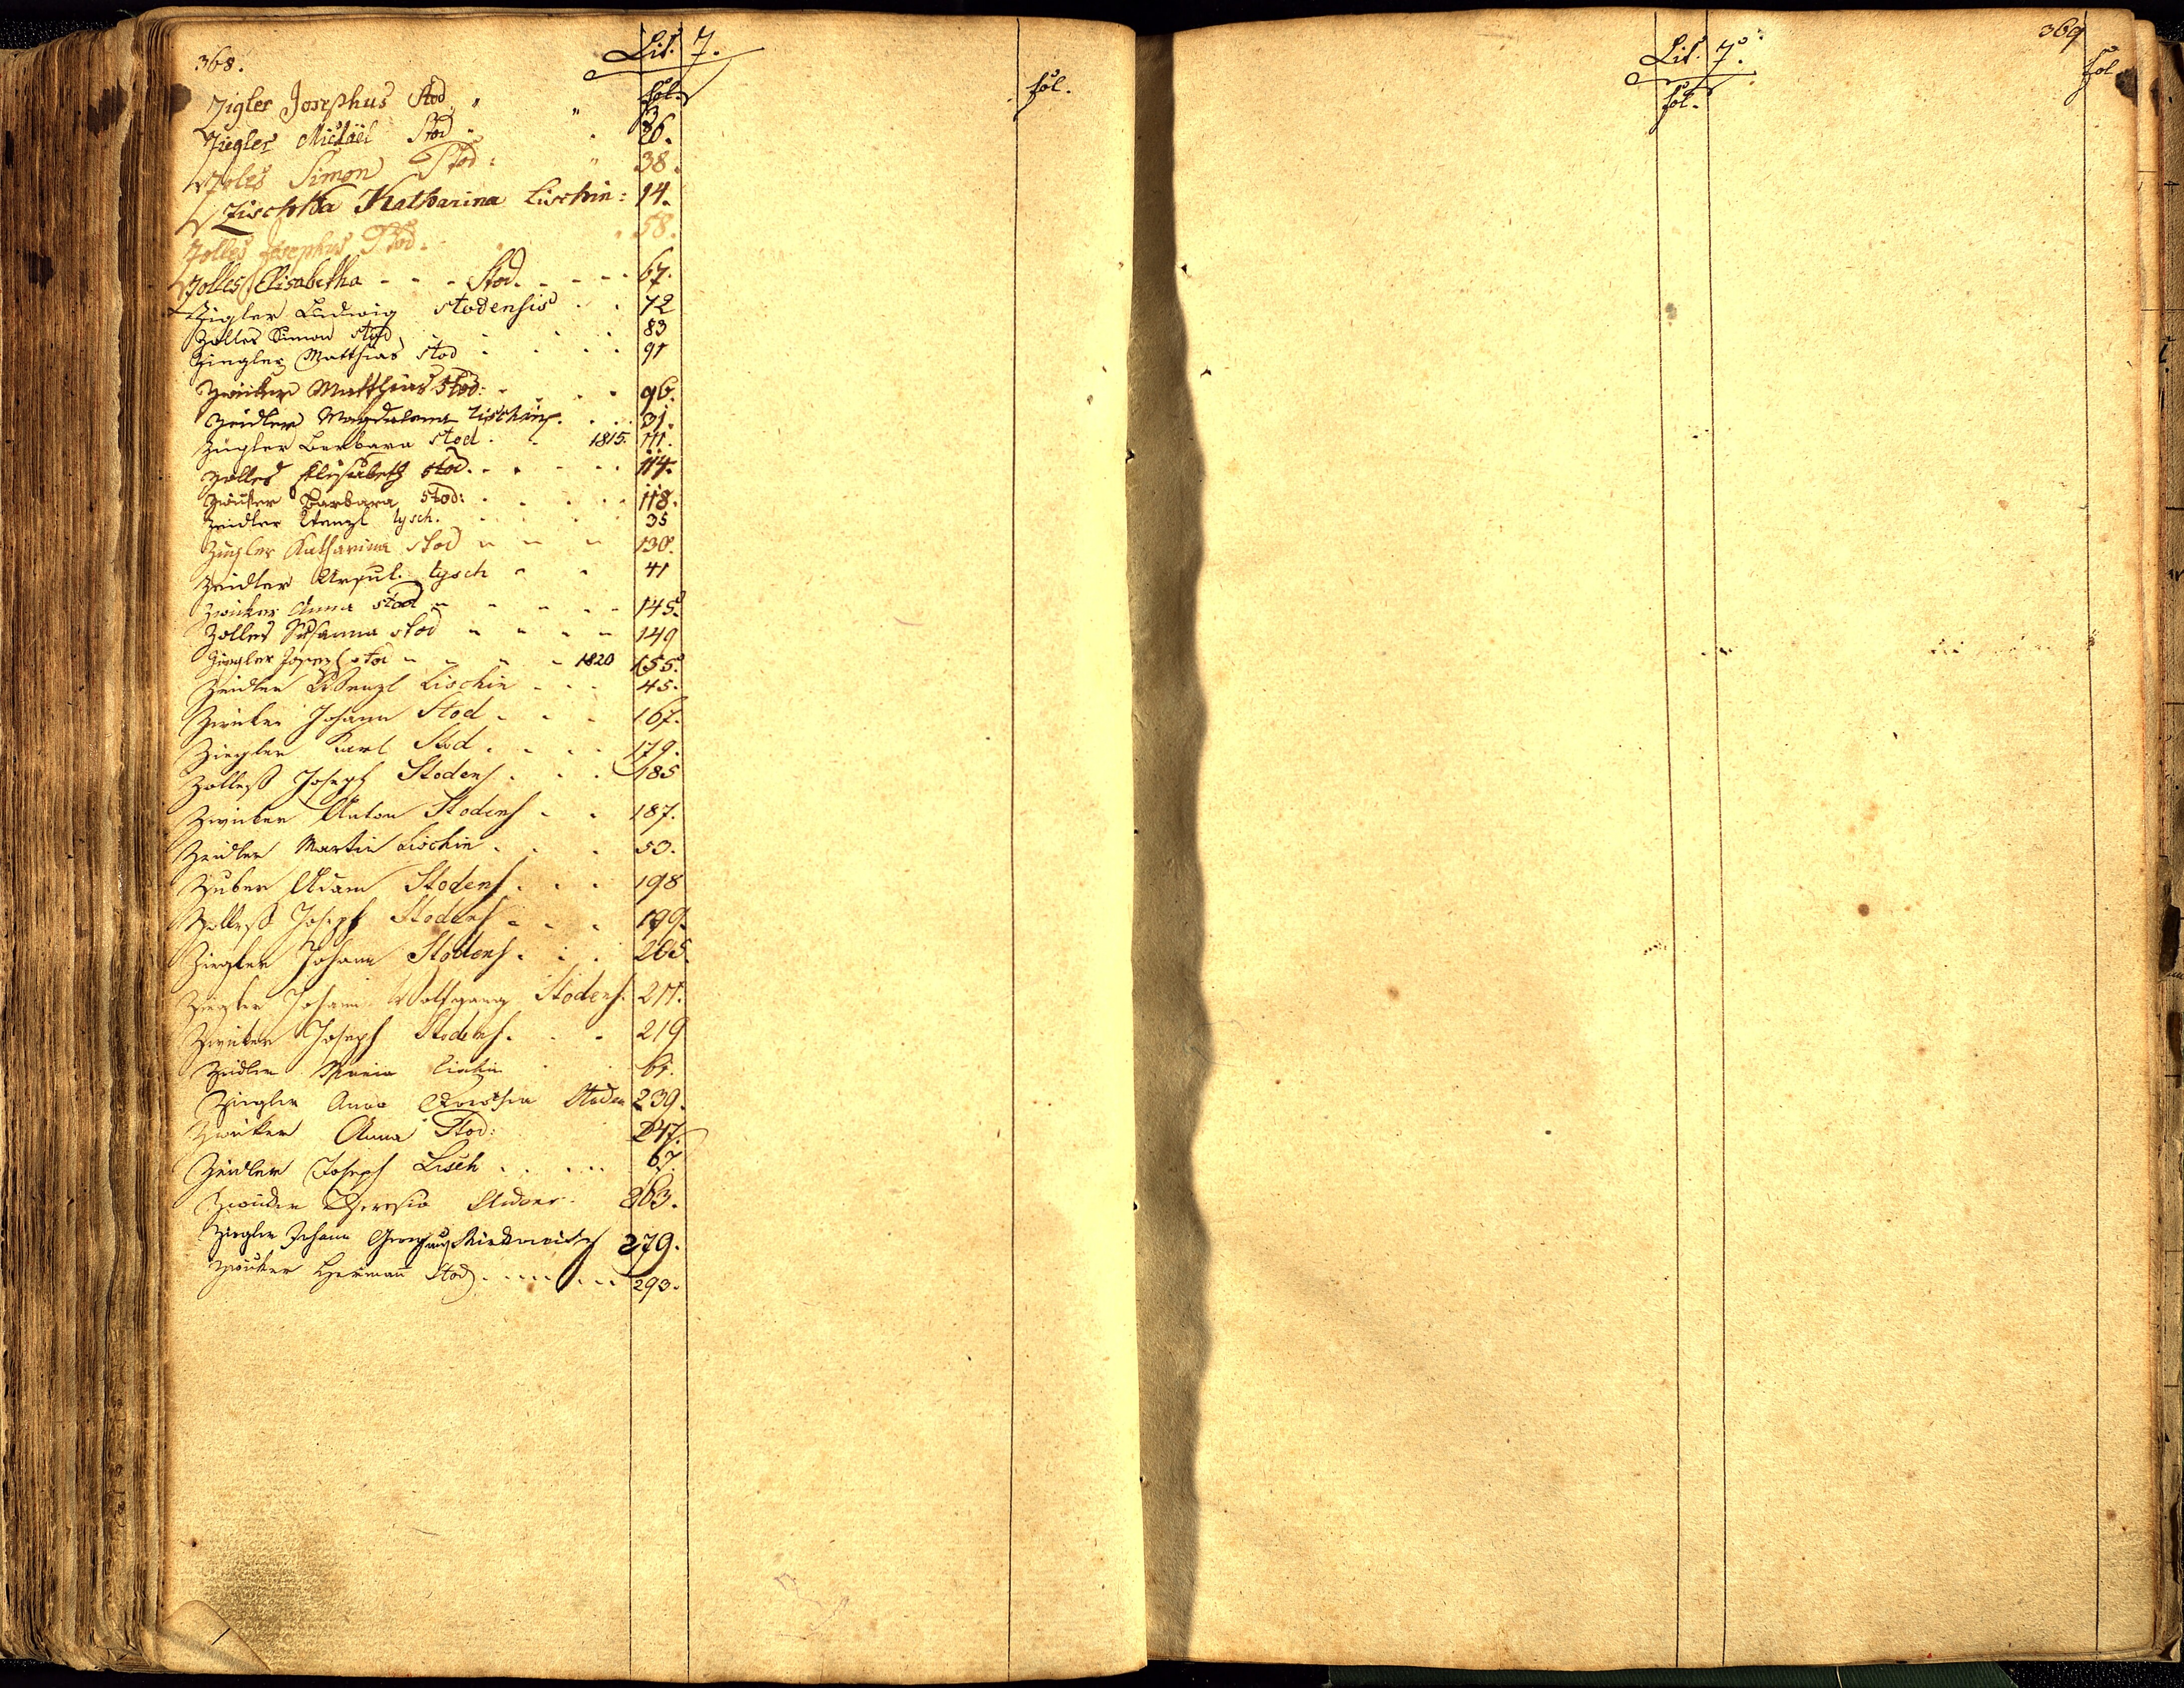 368.
Lit. Z.
fol.
fol.
Zigler Josephus Stod. 3
Ziegler Michäel Stod. 26.
Zoles Simon Stod: 38.
Zischtka Katharina Lischin: 14.
Zolles Josephus Stod. 58.
Zolles Elisabetha - - - Stod. - - - 67.
Zigler Ludwig Stodensis 72
Zolles Simon Stod 83
Ziegler Matthias Stod 91
Zwicker Matthias Stod: 96.
Zeidler Magdalena Lischin. 31.
Zügler Barbara Stod. 1815. 111.
Zolles Elisabeth Stod. 114.
Zwicker Barbara Stod: 118.
Zeidler Wenzl Lysch. 35
Zügler Katharina Stod 130.
Zeidler Ursul. Lysch 41
Zwicker Anna Stod 145.
Zolles Susanna Stod 149
Ziegler Joseph Stod 1820 155.
Zeidler Wenzl Lischin 45.
Zwicker Johann Stod 167.
Ziegler Karl Stod 179.
Zolleß Joseph Stodens. 185
Zwicker Anton Stodens 187.
Zeidler Martin Lischin 53.
Zuber Adam Stodens. 198
Zolleß Joseph Stodens 199.
Ziegler Johann Stodens. 205.
Ziegler Johann Wolfgang Stodens. 217.
Zwicker Joseph Stodens. 219
Zeidler Maria Lischin
Ziegler Anna Stoden 239.
Zwicker Anna Stod: 247.
Zeidler Joseph Lisch 67.
Zwicker Theresia 263.
Ziegler Johann Georg 279.
Zwicker Hermann Stod. 293.
369
Lit. Z.
fol.
fol